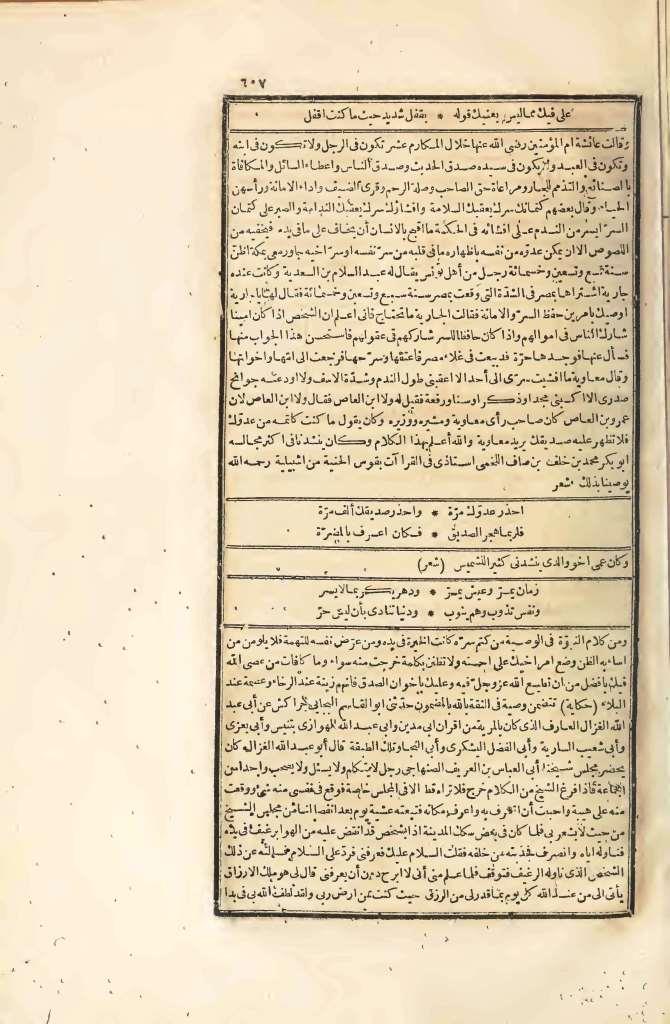 ٦٠٧
على فيك مما ليس يعنيك قوله * بقفل شديد حيث ما كنت اقفل
وقالت عائشة ام المؤمنين رضى الله عنها خلال المكارم عشر تكون فى الرجل ولا تكون فى ابنه
وتكون فى العبد ولا تكون فى سيده صدق الحديث وصدق الناس واعطاء السائل والمكافاة
بالصنائع والتذمم للجار ومراعاة حق الصاحب وصلة الرحم وقرى الضيف واداء الامانة ورأسهن
الحياء وقال بعضهم كتمانك سرك يعقبك السلامة وافشاؤك سرك يعقبك الندامة والصبر على كتمان
السر ايسر من الندم على افشائه فى الحكمة ما اقبح بالانسان أن يخاف على ما فى يده فيخفيه من
اللصوص الا ان يمكن عدوه من نفسه باظهاره ما فى قلبه من سر نفسه اوسر اخيه جاورمعى بمكة اظن
سنة تسع وتسعين وخسمائة رجل من أهل تونس يقال له عبد السلام بن السعدية وكانت عنده
جارية اشتراها بمصر فى الشدة التى وقعت بمصر سنة سبع وتسعين وخمسمائة فقال لها يا جارية
اوصيك بامرين حفظ السر والامانة فقالت الجارية ما تحتاج فانى اعلم ان الشخص اذا كان امينا
شارك الناس فى اموالهم واذا كان حافظا للسر شاركهم فى عقولهم فاستحسن هذا الجواب منها
فسأل عنها فوجدها حرة قد بيعت فى غلاء مصر فاعتقها وسرحها فرجعت الى امها واخواتها
وقال معاوية ما افشيت سرى الى أحد الا اعقبنى طول الندم وشدة الاسف ولا اودعته جوانح
صدرى الا اكسبنى مجدا وذكرا وسناء ورفعة فقيل له ولا ابن العاص فقال ولا ابن العاص لان
عمرو بن العاص كان صاحب رأى معاوية ومشيره ووزيره وكان يقول ما كنت كاتمه من عدوك
فلا تظهر عليه صديقك يريد معاوية والله أعلم بهذا الكلام وكان ينشدنا فى اكثر مجالسه
ابو بكر محمد بن خلف بن صاف اللخمى استاذى فى القرآآت بقوس الحنية من اشبيلية رحمه الله
يوصينا بذلك شعر
احذر عدوك مرة * واحذر صديقك ألف مرة
فلربما هجر الصديق * فكان اعرف بالمضرة
وكان عمى اخو والدى ينشدنى كثير النفسه (شعر)
زمان يمر وعيش يمر * ودهر يكر بما لا يسر
ونفس تذوب وهم ينوب * ودنيا تنادى بأن ليس حر
ومن كلام النبوة فى الوصية من كتم سره كانت الخيرة فى يده ومن عرض نفسه للتهمة فلا يلومن من
اساء به الظن وضع امر اخيك على احسنه ولا تظن بكلمة خرجت منه سواء وما كافأت من عصى الله
فيك بافضل من ان تطيع الله عز وجل فيه وعليك باخوان الصدق فانهم زينة عند الرخاء وعصمة عند
البلاء (حكاية) تتضمن وصية فى الثقة بالله بالمضمون حدثنى ابو القاسم البجائى بمراكش عن أبى عبد
الله الغزال العارف الذى كان بالمرية من اقران ابى مدين وابى عبد الله الهوارى بتنيس وأبى يعزى
وأبى شعيب السارية وأبى الفضل اليشكرى وأبى النجا وتلك الطبقة قال أبو عبد الله الغزال كان
يحضر مجلس شيخنا أبى العباس بن العريف الصنهاجى رجل لا يتكلم ولا يسئل ولا يصحب واحدا من
الجماعة فاذا فرغ الشيخ من الكلام خرج فلا نراه قط الا فى المجلس خاصة فوقع فى نفسى منه شئ ووقعت
منه على هيبة واحببت أن اتعرف به واعرف مكانه فتبعته عشية يوم بعد انفصالنا من مجلس الشيخ
من حيث لا يشعر بى فلما كان فى بعض سكك المدينة اذا بشخص قد انقض عليه من الهواء برغيف فى يده
فناوله اياه وانصرف فجذبته من خلفه فقلت السلام عليك فعرفنى فرد على السلام فسألته عن ذلك
الشخص الذى ناوله الرغيف فتوقف فلما علم منى أنى لا ابرح دون أن يعرفنى قال لى هو ملك الارزاق
يأتى الى من عند الله كل يوم بما قدر لى من الرزق حيث كنت من ارض ربى ولقد لطف الله بى فى بدا